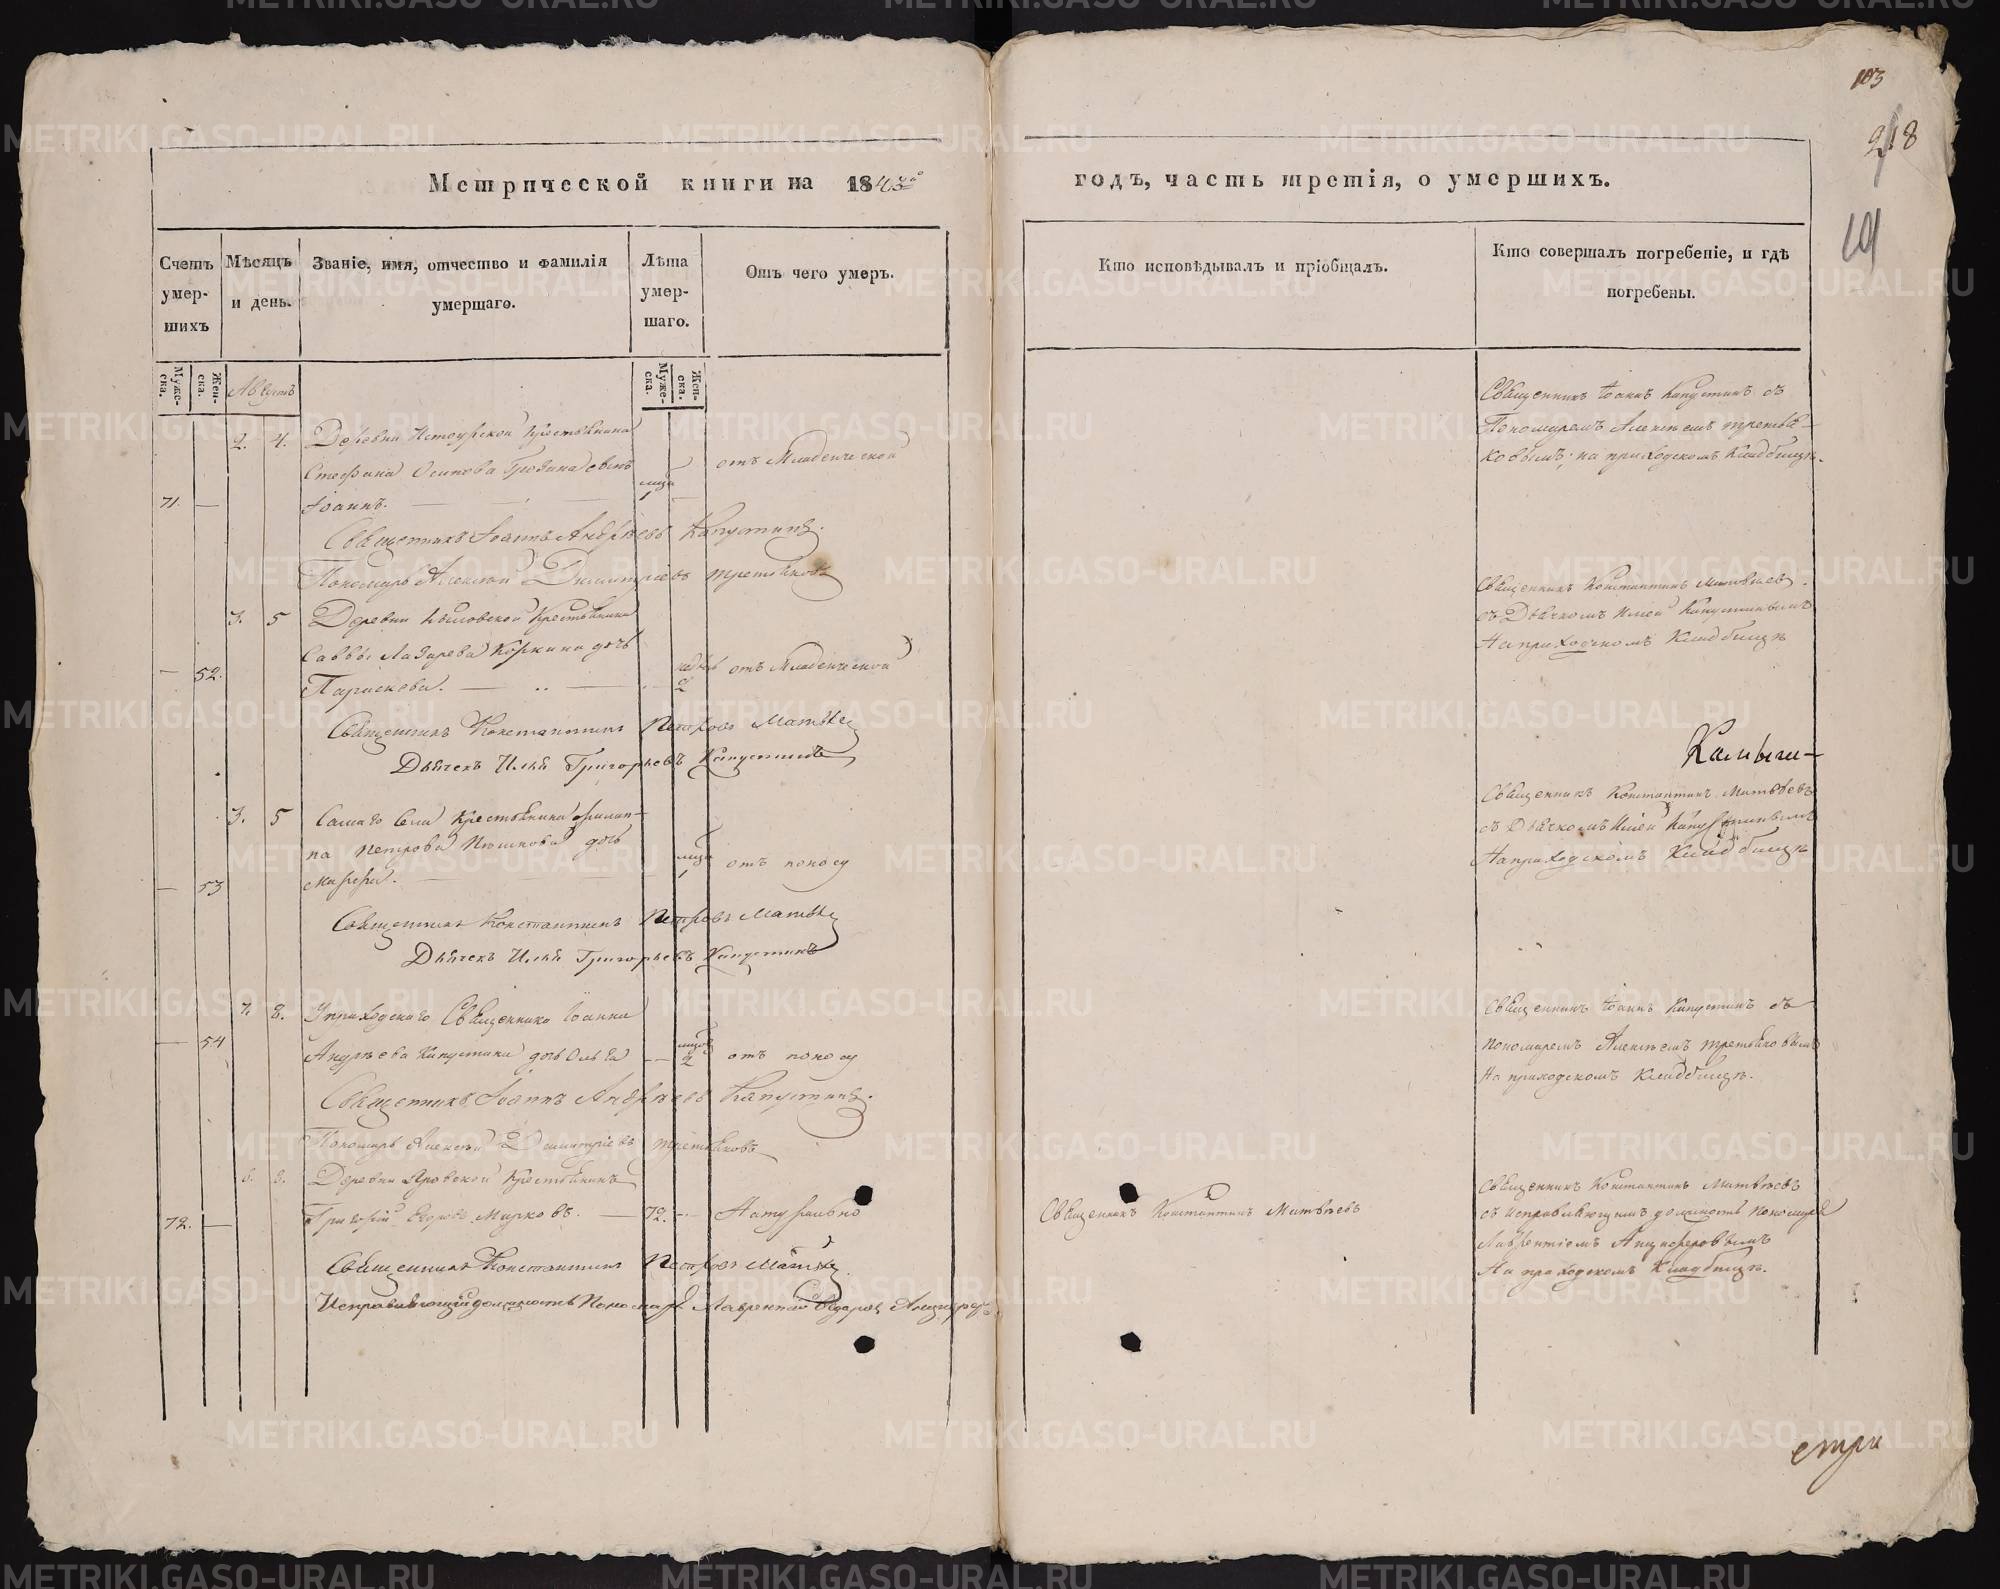 103
218
Метрической книги на 1843го
годъ, часть третія, о умершихъ.
Счетъ умер-шихъ
Мѣсяцъ и день.
Званіе, имя, отчество и фамилія умершаго.
Лѣта умер-шаго.
Отъ чего умеръ.
Кто исповѣдывалъ и пріобщалъ.
Кто совершалъ погребеніе, и гдѣ погребены.
Муже-ска.
Жен-ска.
Августъ
Муже-ска.
Жен-ска.
2. 4. Деревни Крестьянина
Стефана Осипова сынъ
71. — Іоаннъ. 1 — отъ Младенческой
Священникъ Іоаннъ Капустинъ съ
Пономаремъ Алексѣемъ Третья-
ковымъ, на приходскомъ Кладбищѣ.
Священникъ Іоаннъ Андреевъ Капустинъ.
Пономарь Алексѣй Димитріевъ Третьяковъ
3. 5 Деревни Крестьянина
Саввы Лазарева Коркина дочь
— 52. Параскева. 2 отъ Младенческой
Священникъ Константинъ Матвѣевъ
съ Дьячкомъ Ильей Капустинымъ
На приходскомъ Кладбищѣ
Священникъ Константинъ Петровъ Матвѣев
Дьячекъ Илья Григорьевъ Капустинъ
Камыш-
3. 5 Самаго Села Крестьянина Филип-
па Петрова дочь
— 53 Марфа. 1 отъ поносу
Священникъ Константинъ Матвѣевъ
съ Дьячкомъ Ильей Капустинымъ
На приходскомъ Кладбищѣ
Священникъ Константинъ Петровъ Матвѣев
Дьячекъ Илья Григорьевъ Капустинъ
7. 8. У приходскаго Священника Іоанна
— 54 Андреева Капустина дочь Ольга — 2 отъ поносу
Священникъ Іоаннъ Капустинъ съ
пономаремъ Алексѣемъ Третьяковымъ
На приходскомъ Кладбищѣ.
Священникъ Іоаннъ Андреевъ Капустинъ.
Пономарь Алексѣй Димитріевъ Третьяковъ
6. 8. Деревни Яровской Крестьянинъ
72. — Григорій Егоровъ Марковъ. — 72. — Натурально
Священникъ Константинъ Матвѣевъ
Священникъ Константинъ Матвѣевъ
съ исправляющимъ должность пономаря
Лаврентіемъ Анциферовымъ
На приходскомъ Кладбищѣ.
Священникъ Константинъ Петровъ Матвѣев
Исправляющій должность Пономаря Лаврентій Анциферов
стри
METRIKI.GASO-URAL.RU